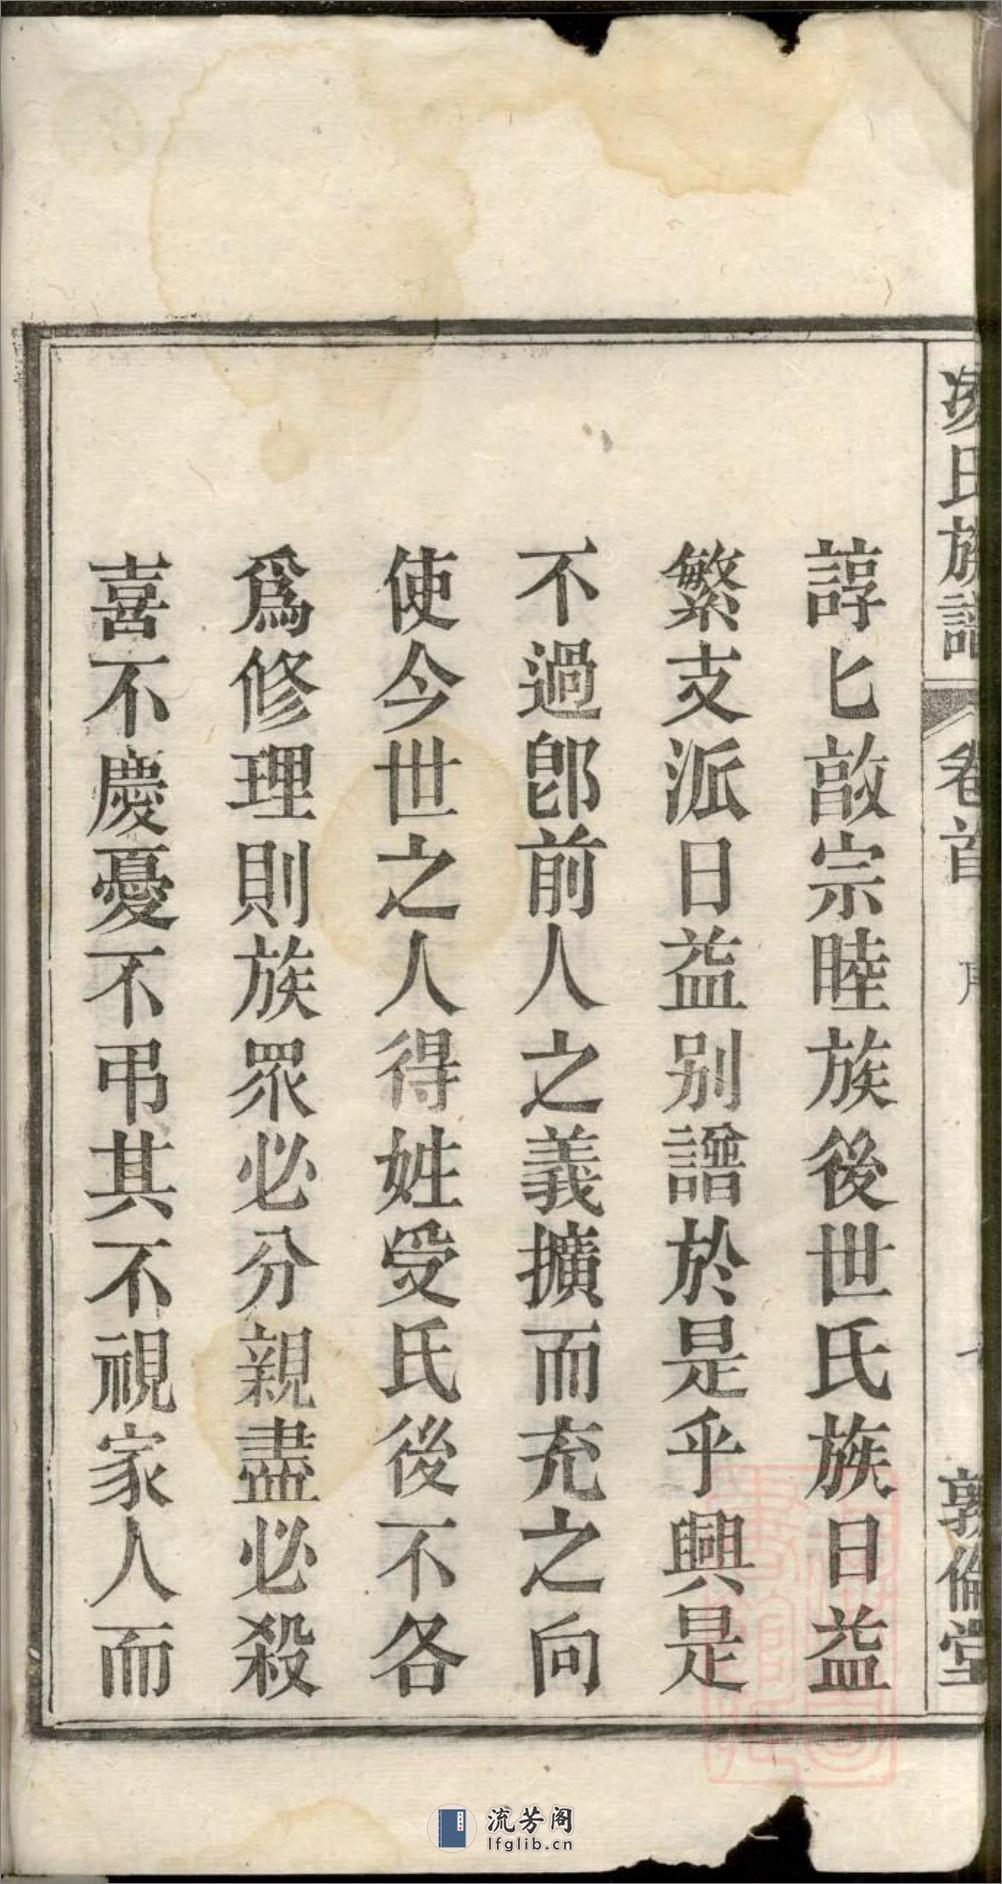 氏族譜 卷首 敦倫堂
諄匕敬宗睦族後世氏族日益
繁支派日益别譜於是乎興是
不過卽前人之義擴而充之向
使今世之人得姓受氏後不各
爲修理則族眾必分親盡必殺
喜不慶憂不弔其不視家人而
流芳阁
lfglib.cn